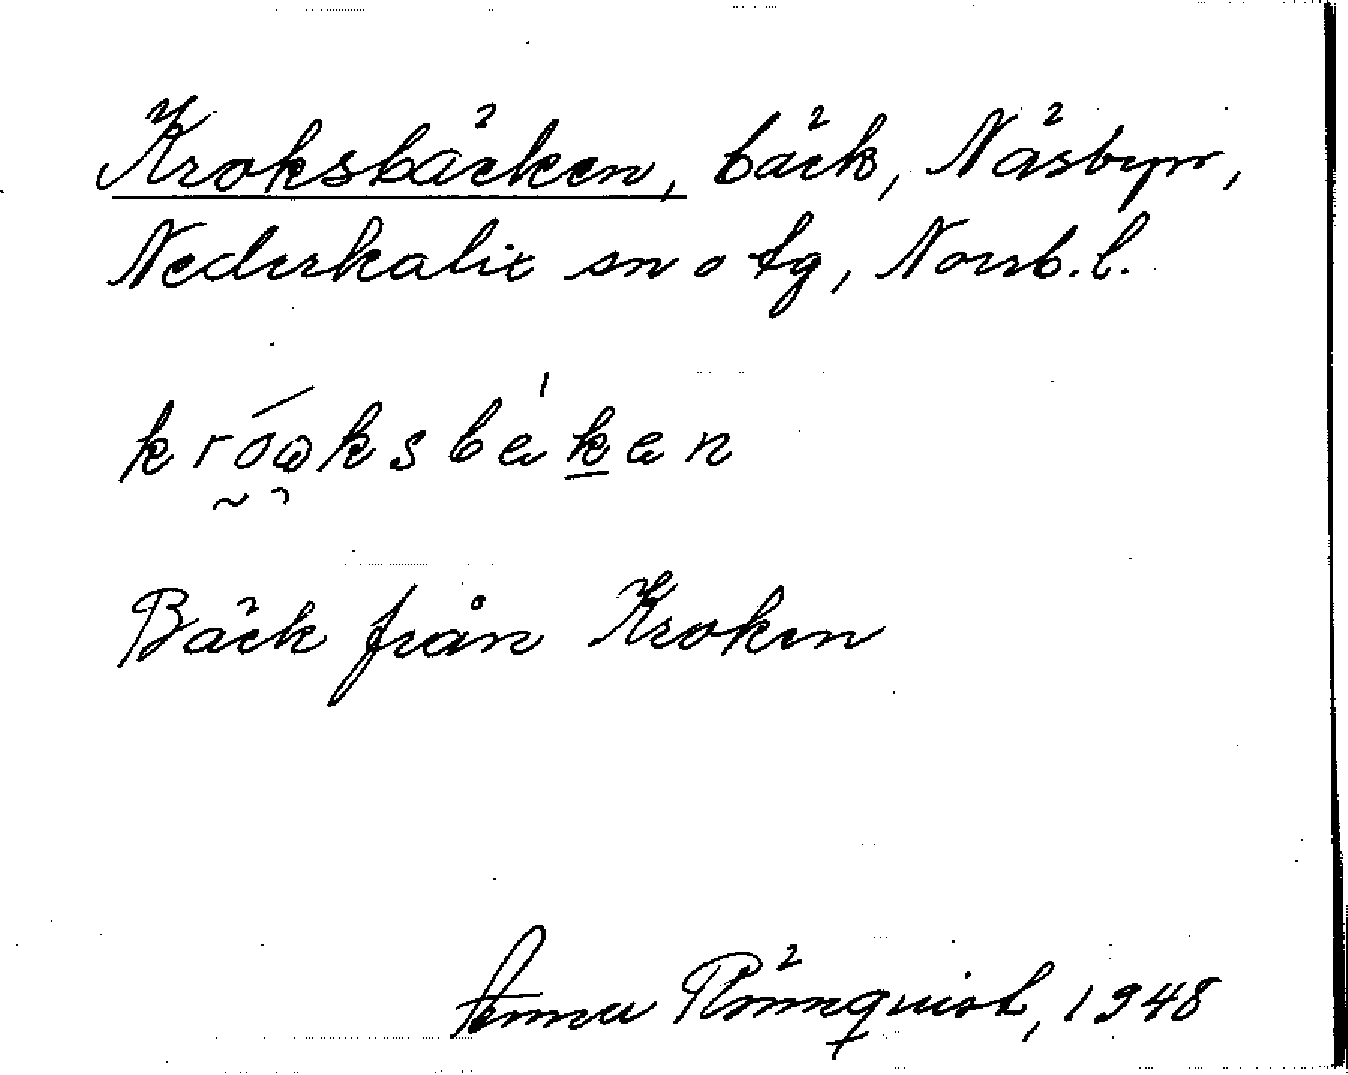 Kroksbäcken, bäck, Näsbyn,
Nederkalix sn o tg, Norrb. l.
Bäck från Kroken
Anna Rönnqvist, 1948